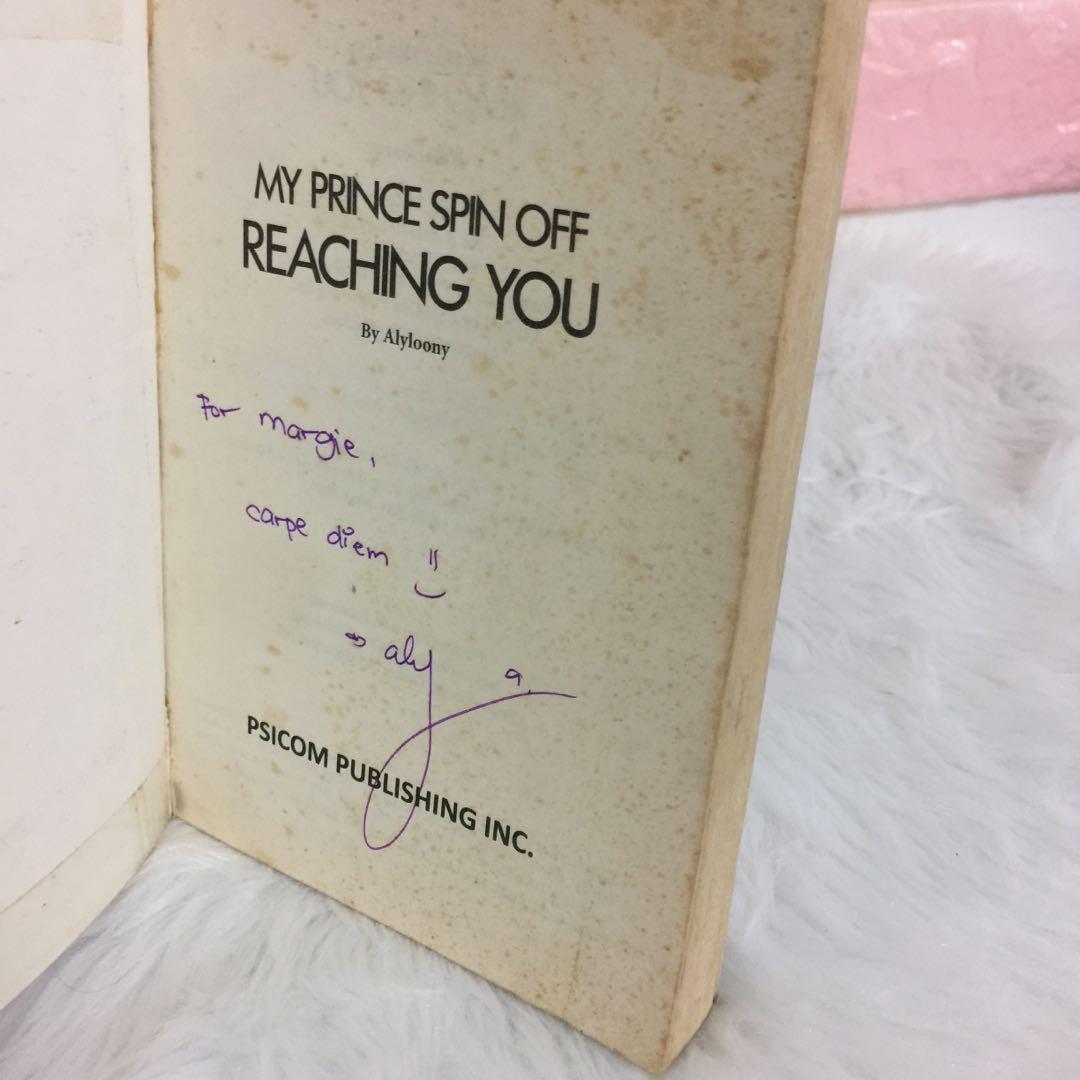 MY PRINCE SPIN OFF
REACHING YOU
By Alyloony
For margie,
carpe diem
aly a.
PSICOM PUBLISHING INC.